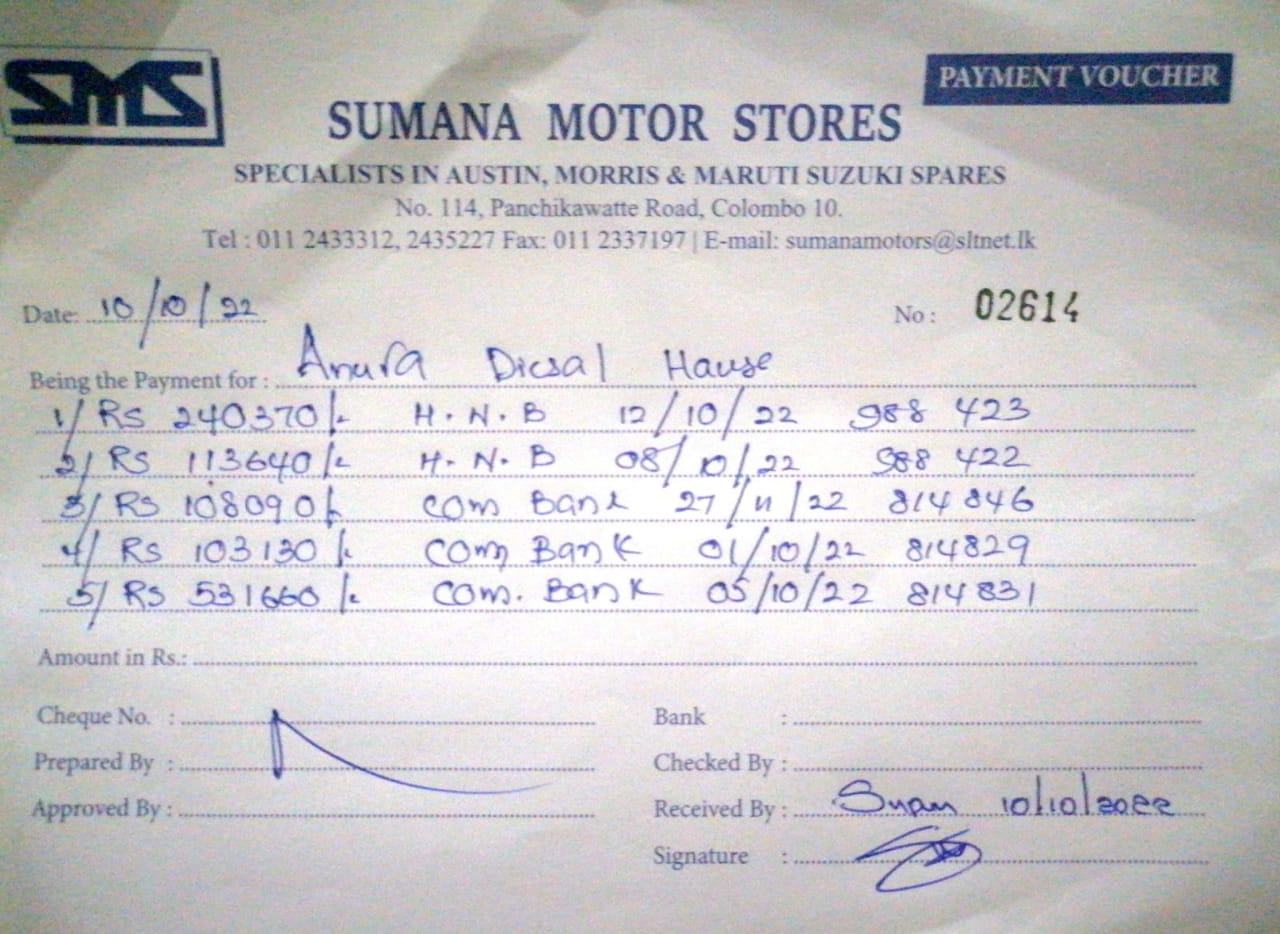 SMS
PAYMENT VOUCHER
SUMANA MOTOR STORES
SPECIALISTS IN AUSTIN, MORRIS & MARUTI SUZUKI SPARES
No. 114, Panchikawatte Road, Colombo 10.
Tel : 011 2433312, 2435227 Fax: 011 2337197 | E-mail: sumanamotors@sltnet.lk
Date: 10/10/22 No : 02614
Being the Payment for : Anura Dicsal Hause
1/ Rs 240370/- H.N.B 12/10/22 988 423
2/ Rs 113640/- H.N.B 08/10/22 988 422
3/ Rs 108090/- Com Bank 27/11/22 814 846
4/ Rs 103130/- Com Bank 01/10/22 814829
5/ Rs 531660/- Com. Bank 05/10/22 814831
Amount in Rs.:
Cheque No. : Bank :
Prepared By : Checked By :
Approved By : Received By : 10/10/2022
Signature :